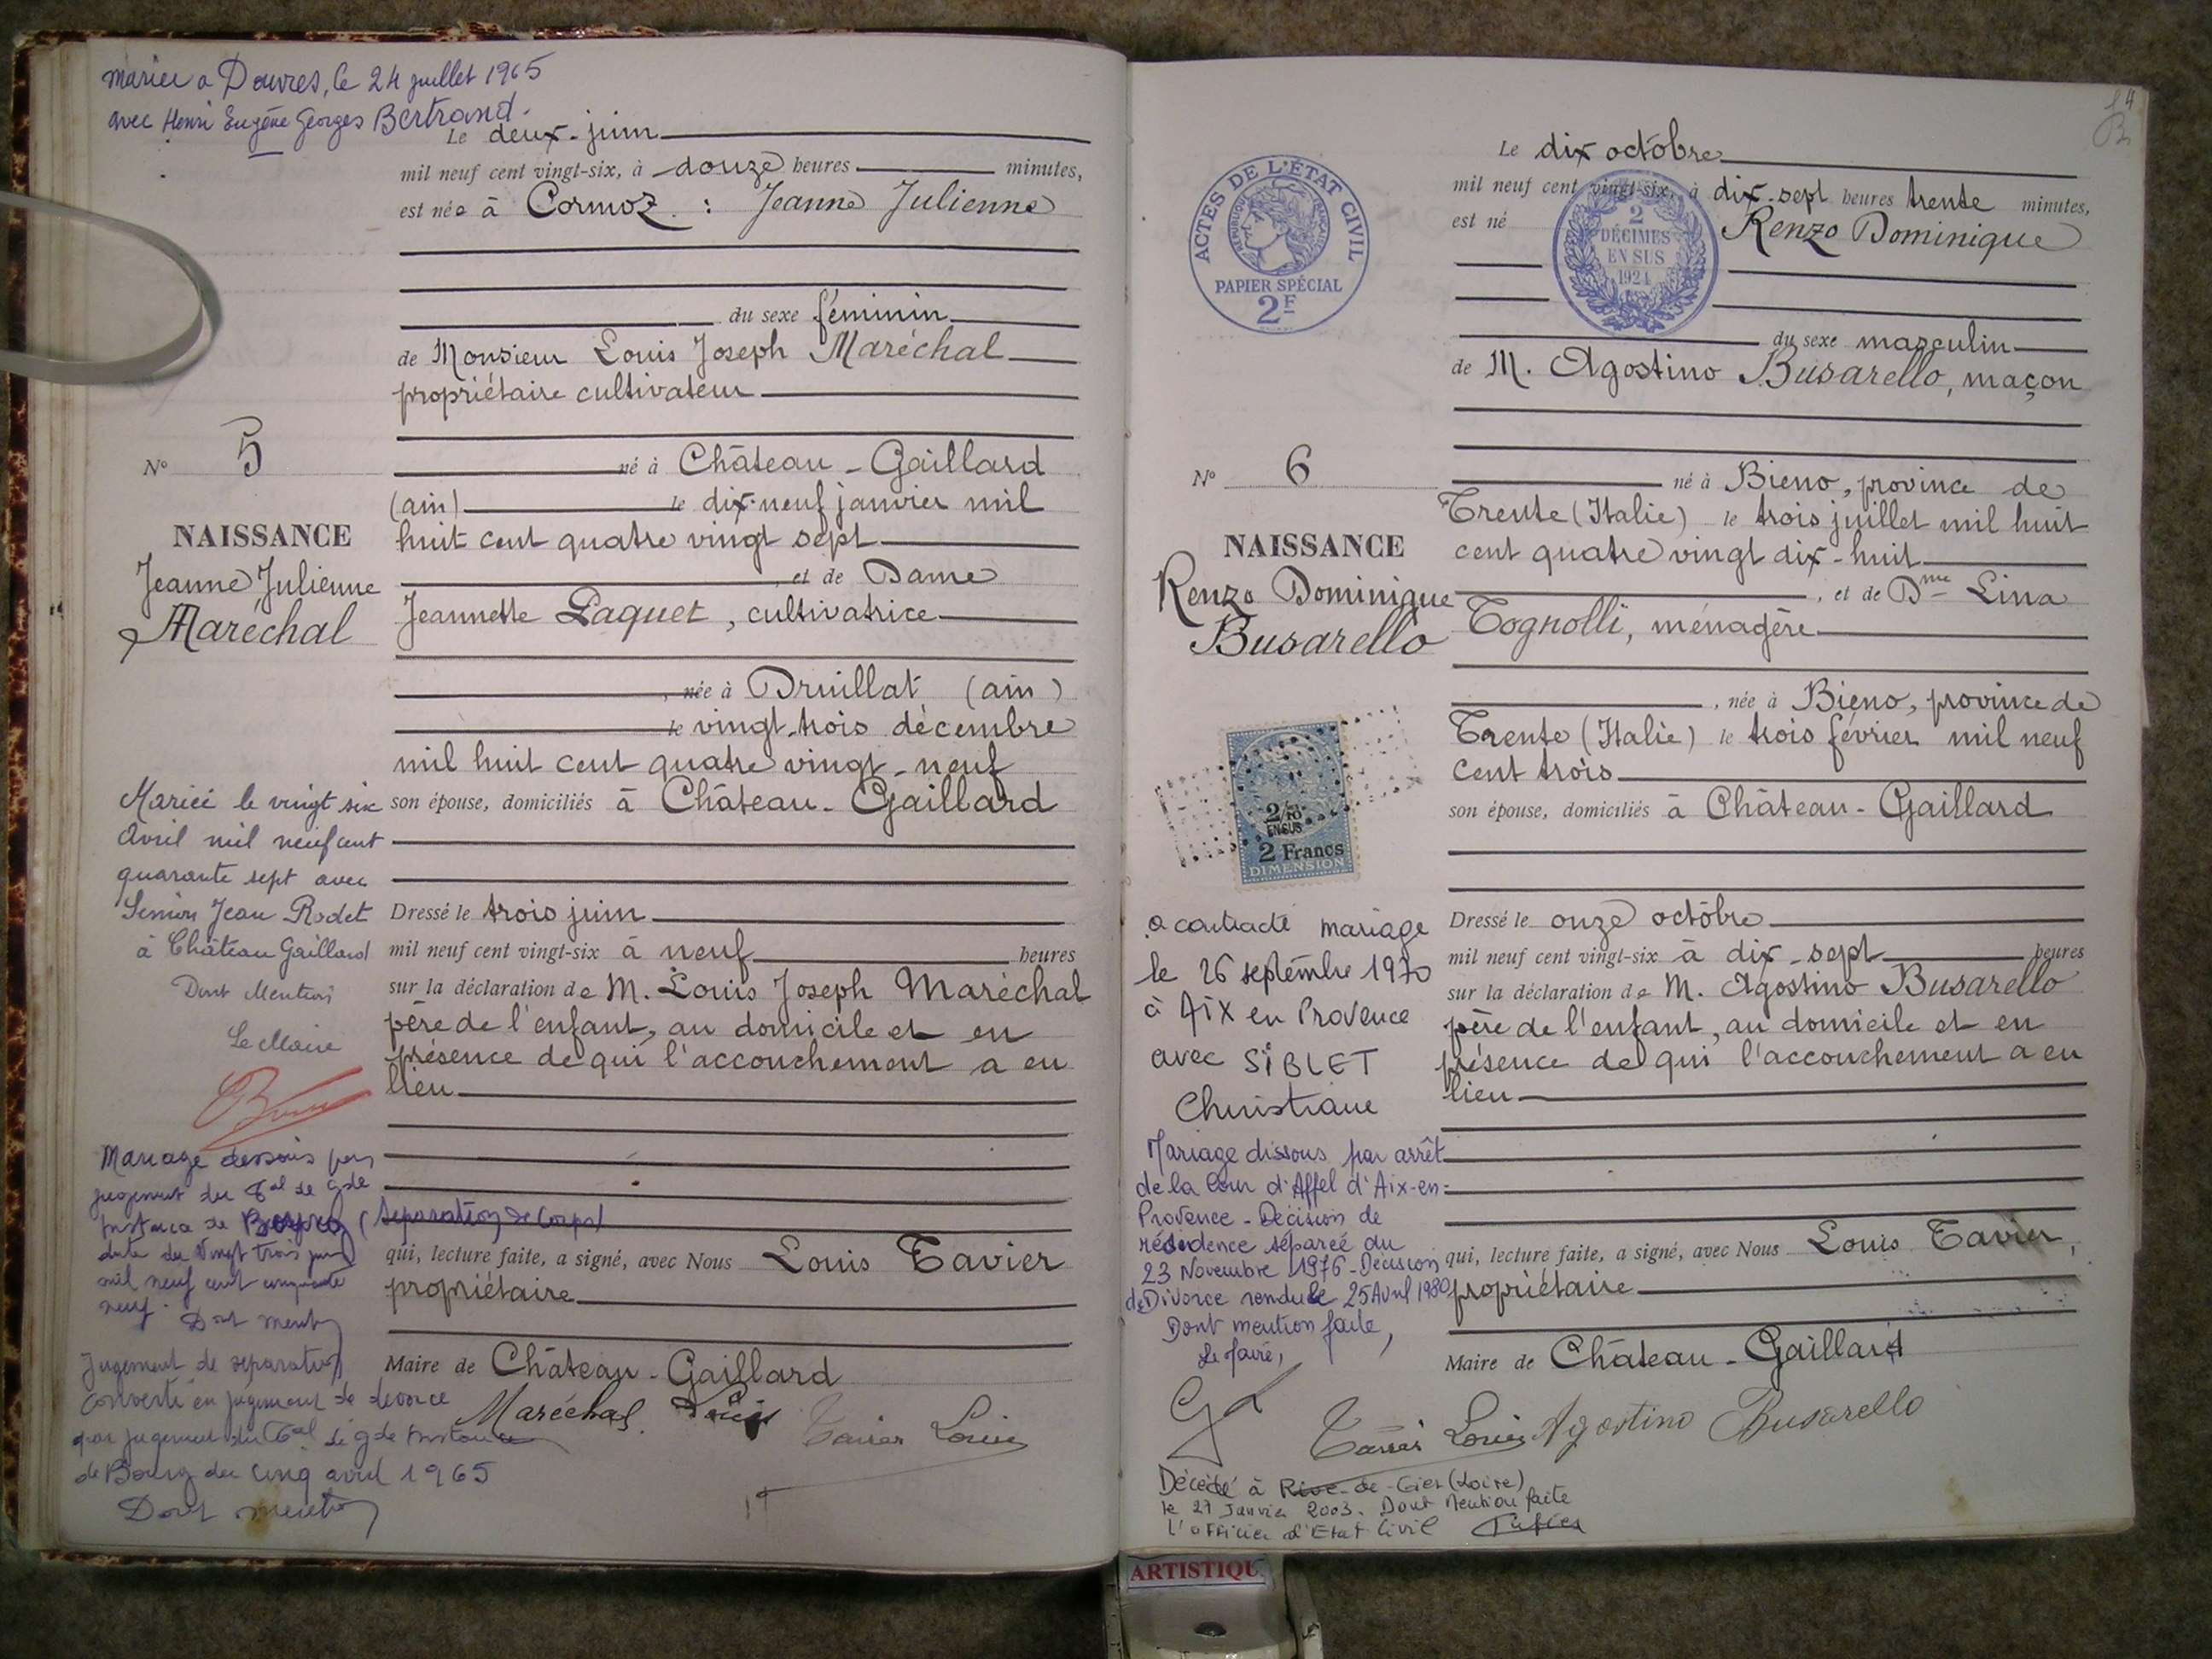 Mariée a Douvres, le 24 juillet 1965
avec Henri Eugène Georges Bertrand.
Le deux juin
mil neuf cent vingt-six, à douze heures minutes,
est née à Cormoz : Jeanne Julienne
du sexe féminin
de Monsieur Louis Joseph Maréchal
propriétaire cultivateur
né à Château-Gaillard
(ain) le dix-neuf janvier mil
huit cent quatre vingt sept
, et de Dame
Jeannette Paquet, cultivatrice
, née à Druillat (ain)
le vingt-trois décembre
mil huit cent quatre vingt-neuf
son épouse, domiciliés à Château-Gaillard
Dressé le trois juin
mil neuf cent vingt-six à neuf heures
sur la déclaration de M. Louis Joseph Maréchal
père de l'enfant, au domicile et en
présence de qui l'accouchement a eu
lieu
qui, lecture faite, a signé, avec Nous Louis Tavier
propriétaire
Maire de Château-Gaillard
Maréchal Louis Tavier Louis
No 5
NAISSANCE
Jeanne Julienne
Maréchal
Mariée le vingt six
Avril mil neuf cent
quarante sept avec
Simon Jean Rodet
à Château Gaillard
Dont Mention
Le Maire
Mariage dessous par
jugement du Tal de gde
Instance de Bourg (séparation de corps)
date du vingt trois juin
mil neuf cent cinquante
neuf.
Dont mention
Jugement de séparation
converti en jugement de divorce
par jugement du Tal de gde Instance
de Bourg du cinq avril 1965
Dont mention
14
ACTES DE L'ÉTAT CIVIL
RÉPUBLIQUE FRANÇAISE
PAPIER SPÉCIAL
2F
2
DÉCIMES
EN SUS
1924
Le dix octobre
mil neuf cent vingt-six, à dix-sept heures trente minutes,
est né Renzo Dominique
du sexe masculin
de M. Agostino Busarello, maçon
né à Bieno, province de
Trente (Italie) le trois juillet mil huit
cent quatre vingt dix-huit
, et de Dme Lina
Tognolli, ménagère
, née à Bieno, province de
Trente (Italie) le trois février mil neuf
cent trois
son épouse, domiciliés à Château-Gaillard
Dressé le onze octobre
mil neuf cent vingt-six à dix-sept heures
sur la déclaration de M. Agostino Busarello
père de l'enfant, au domicile et en
présence de qui l'accouchement a eu
lieu
qui, lecture faite, a signé, avec Nous Louis Tavier,
propriétaire
Maire de Château-Gaillard
Tavier Louis Agostino Busarello
No 6
NAISSANCE
Renzo Dominique
Busarello
2/10
EN SUS
2 Francs
DIMENSION
a contracté mariage
le 26 septembre 1970
à Aix en Provence
avec SIBLET
Christiane
Mariage dissous par arrêt
de la Cour d'Appel d'Aix-en-
Provence - Décision de
résidence séparée du
23 Novembre 1976 - Décision
de Divorce rendu le 25 Avril 1980
Dont mention faite,
Le Maire,
Décédé à Rive-de-Gier (Loire)
le 27 Janvier 2003. Dont mention faite
L'officier d'Etat Civil
ARTISTIQU